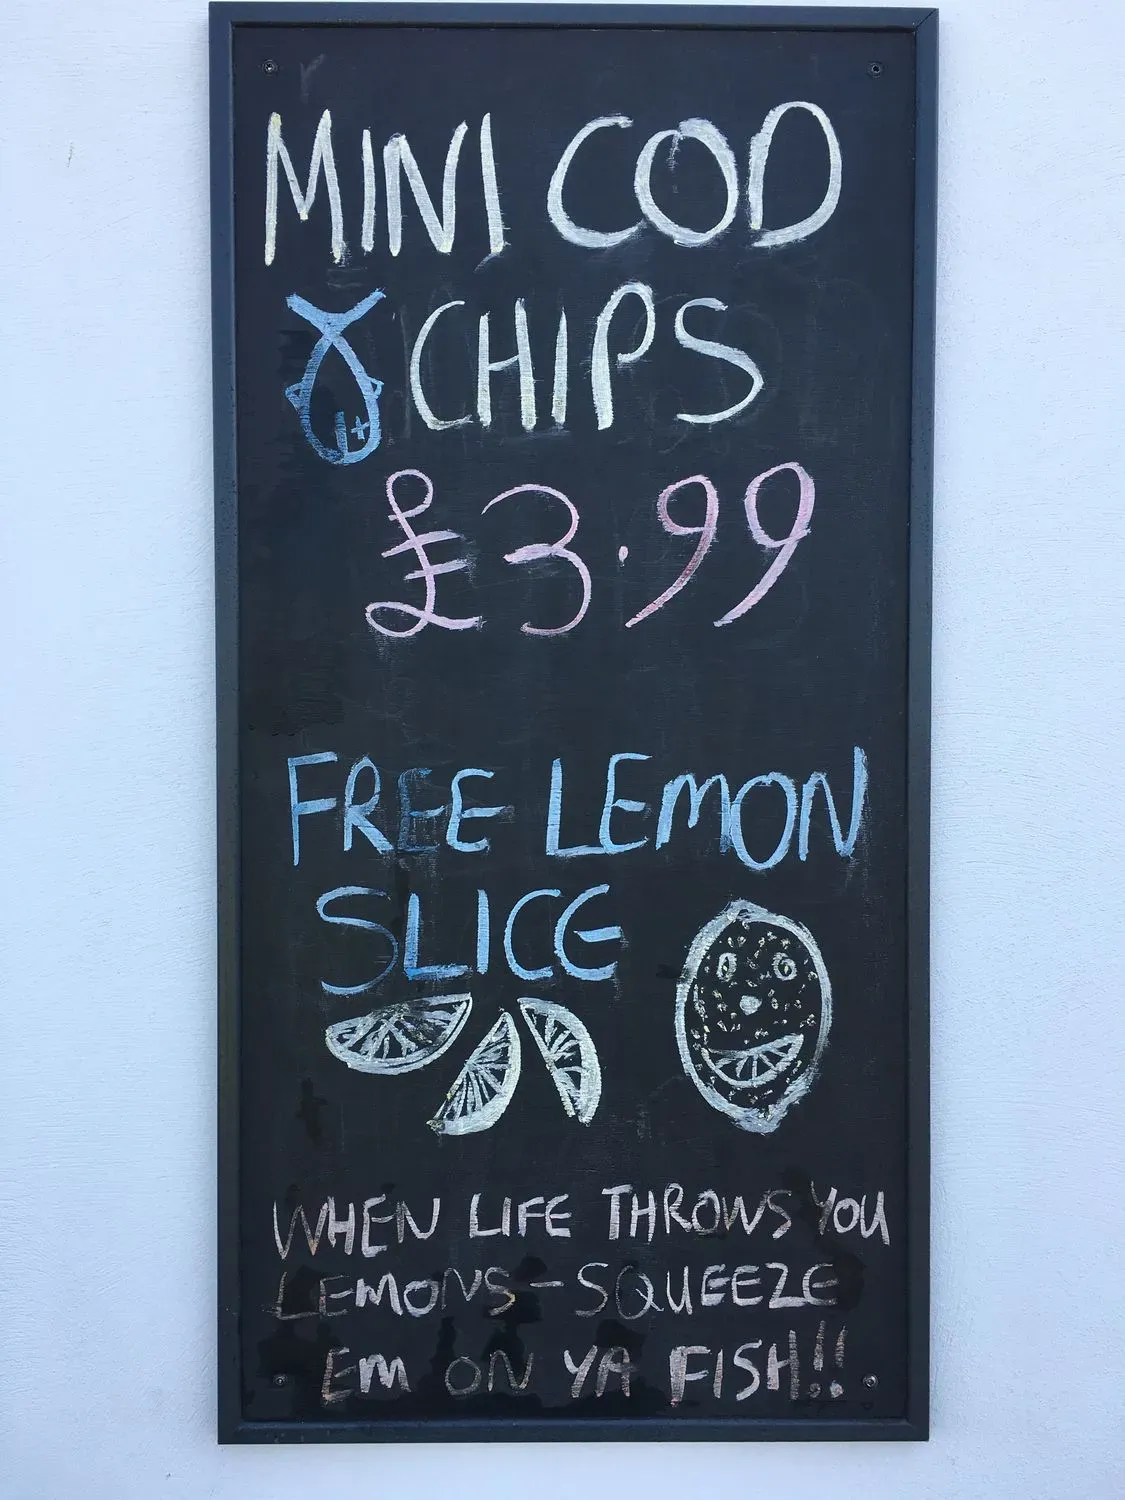 MINI COD
CHIPS
£3.99
FREE LEMON
SLICE
WHEN LIFE THROWS YOU
LEMONS - SQUEEZE
EM ON YA FISH!!